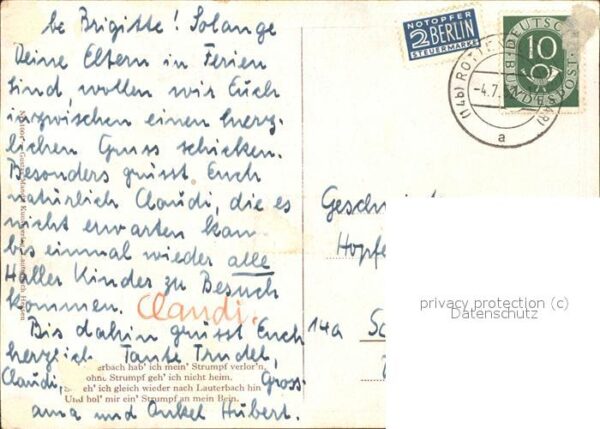 be Brigitte! Solange
Deine Eltern in Ferien
sind, wollen wir Euch
inzwischen einen herz-
lichen Gruss schicken.
Besonders grüsst Euch
natürlich Claudi, die es
nicht erwarten kann
bis einmal wieder alle
Haller Kinder zu Besuch
kommen. Claudi.
Bis dahin grüsst Euch
herzlich Tante Trudel,
Claudi, Gross-
ama und Onkel Hubert.
erbach hab' ich mein' Strumpf verlor'n,
ohne Strumpf geh' ich nicht heim,
eh' ich gleich wieder nach Lauterbach hin
Und hol' mir ein' Strumpf an mein Bein.
NOTOPFER
2 BERLIN
STEUERMARKE
DEUTSCHE
BUNDESPOST
10
(14b) ROTTEN
-4.7.
a
Geschwist
Hopfe
14a
privacy protection (c)
Datenschutz